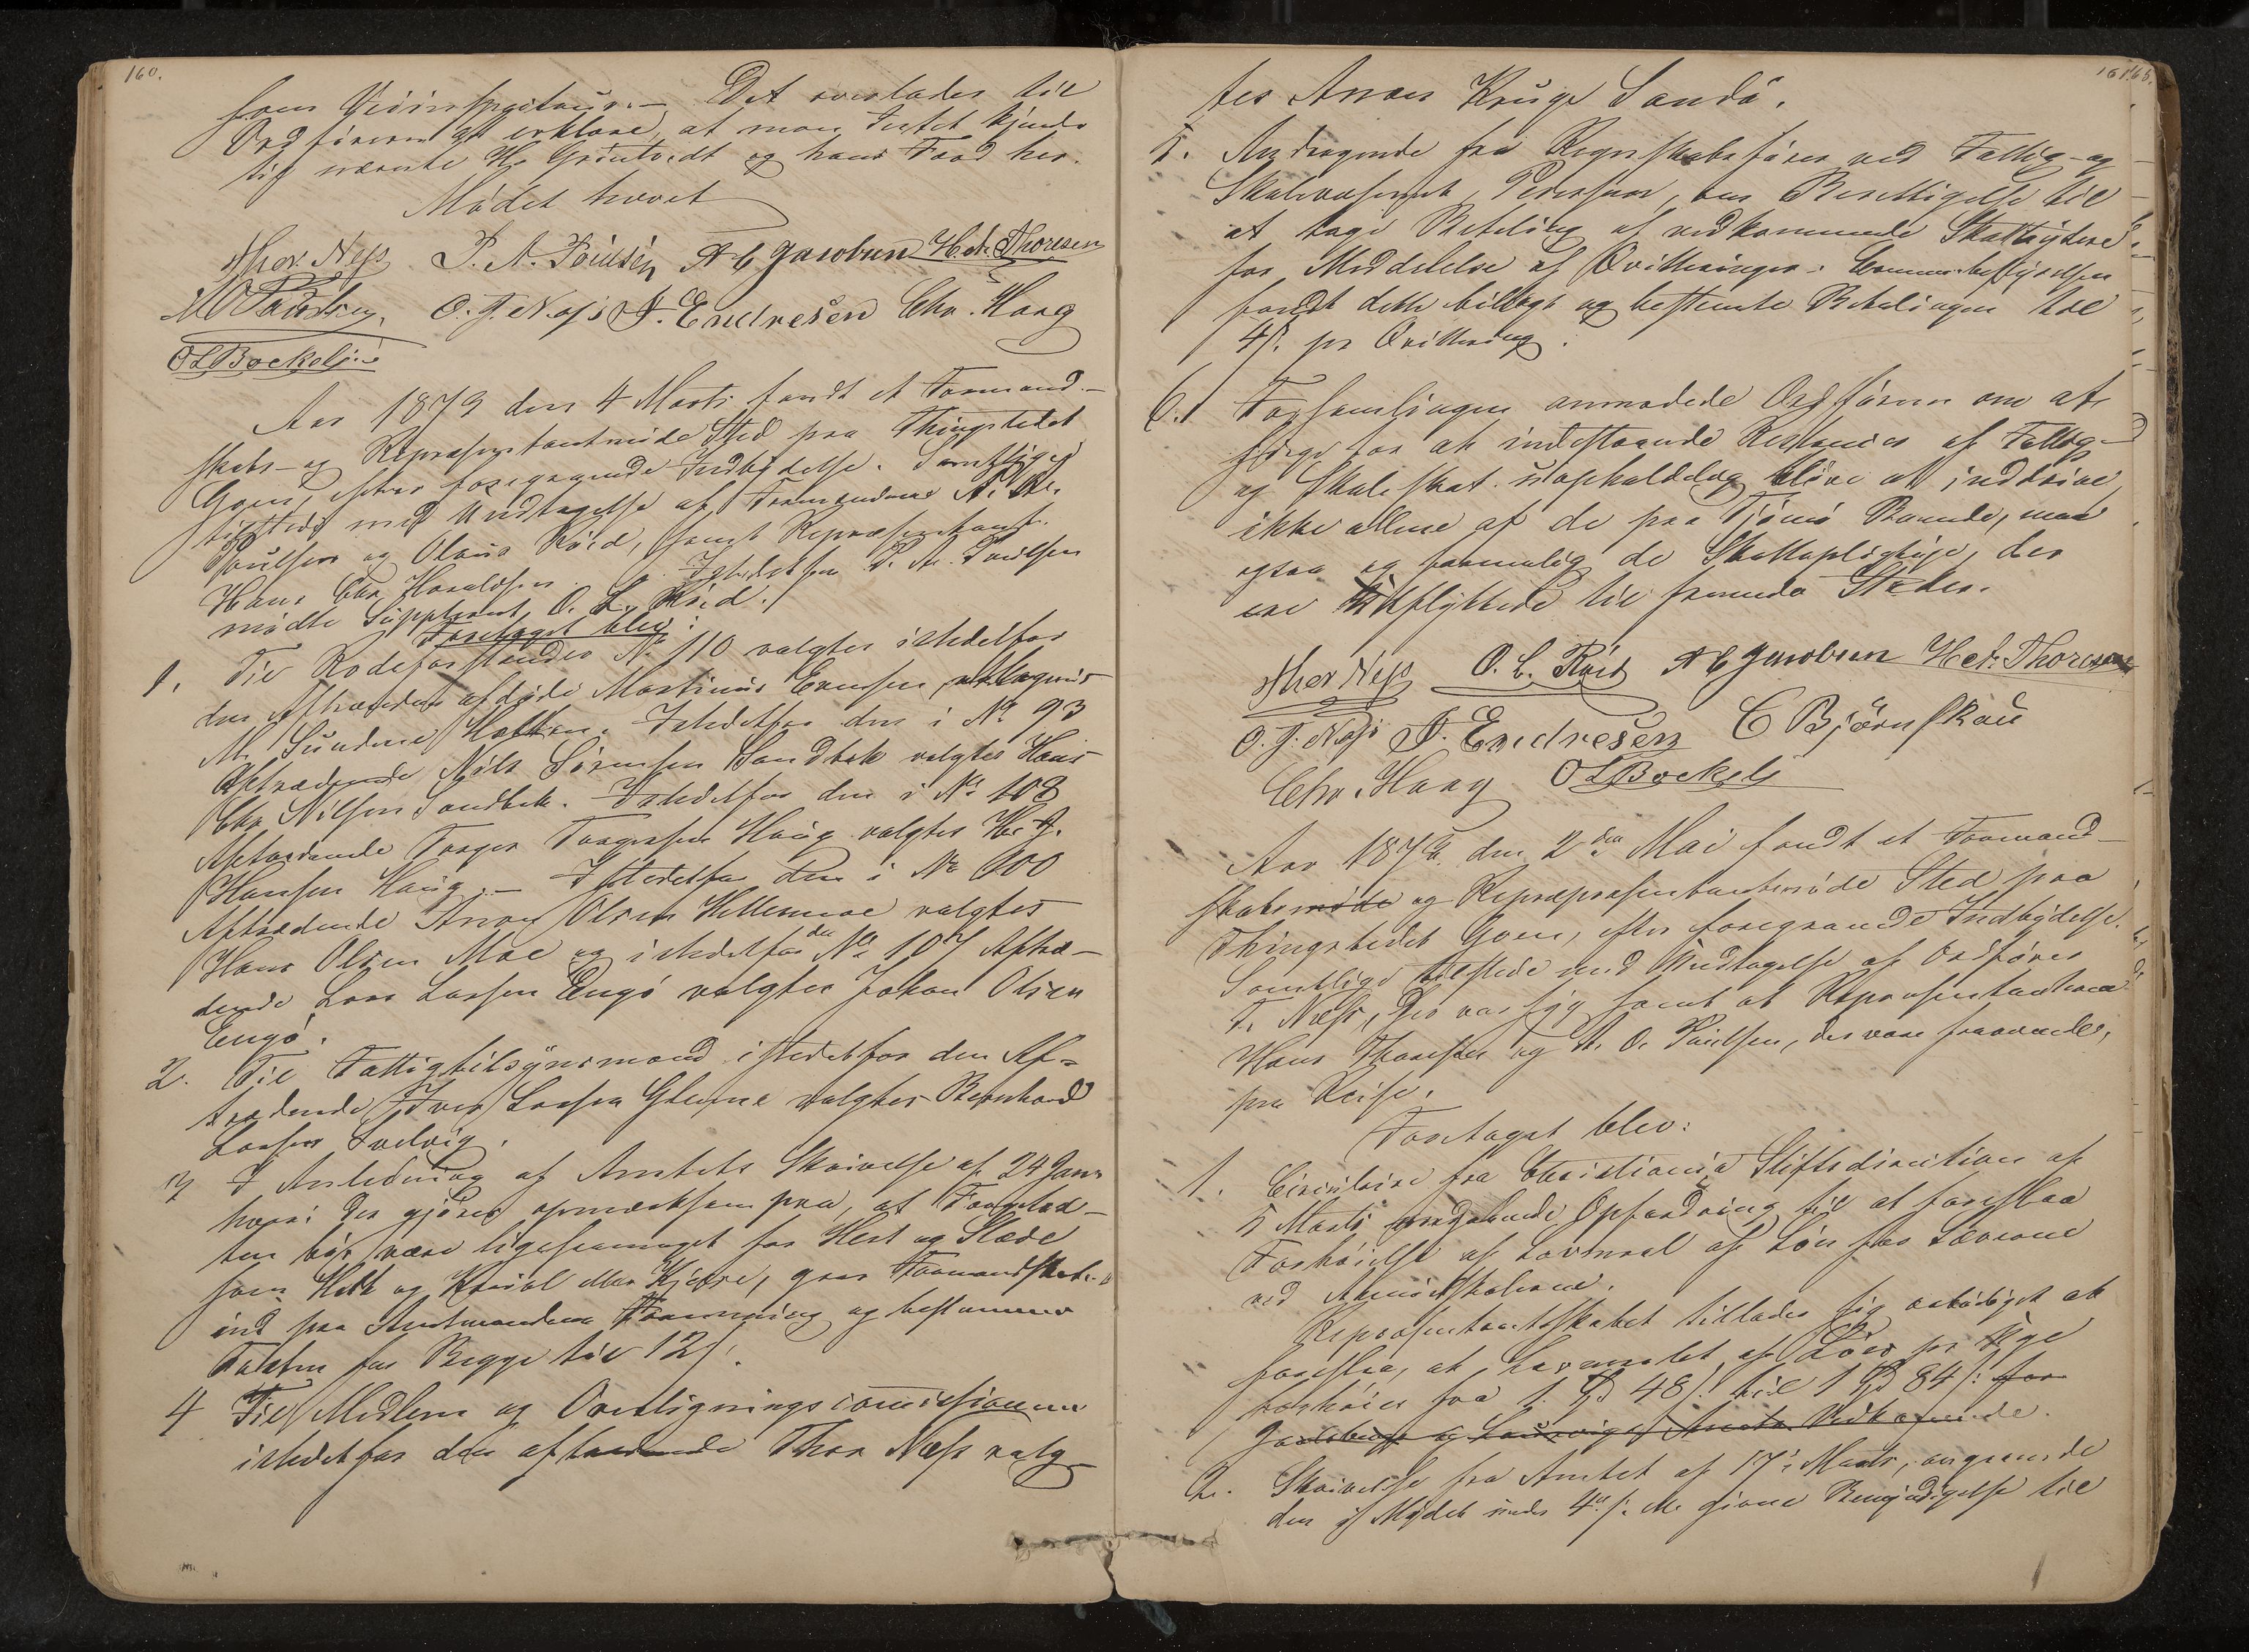 160.
som Veiinspecteur. – Det overlades til
Ordføreren at erklære, at man Intet kjender
til nævnte Hr Grintvedt og hans Færd her.
Mødet hævet
Thor Næss P. A. Poulsen A C Jacobsen H. Chr. Thoresen
O. J. Næss F. Endresen Chr. Haag
O L Bockelie
Aar 1879 den 4 Marts fandt et Formand-
skabs- og Repræsentantmøde Sted paa Thingstedet
Gron, efter foregaaende Indbydelse. Samtlige
tilstede med Undtagelse af Formændene P. A.
Poulsen og Olaus Røed, samt Repræsentant
Hans Chr Haraldsen. Istedetfor P. A. Poulsen
mødte Suppleant O. L. Røed.
Foretaget blev:
1. Til Rodeforstander No 110 valgtes istedetfor
den Aftrædende afdøde Martinus Evensen, Magnus
M. Sundene Holtan. Istedetfor den i No 93
Aftrædende Nils Sørensen Sandbek valgtes Hans
Chr Nilsen Sandbek. Istedetfor den i No 108
Aftrædende Torger Torgersen Haug valgtes H. J.
Hansen Haug. – Istedetfor den i No 100
Aftrædende Anders Olsen Hellemoe valgtes
Hans Olsen Moe og istedetfor den No 107 Aftræ-
dende Lars Larsen Engø valgtes Johan Olsen
Engø.
2. Til Fattigtilsynsmand istedetfor den Af-
trædende Iver Larsen Glenne valgtes Bernhard
Larsen Solvig.
3 I Anledning af Amtets Skrivelse af 24 Janr
hvori der gjøres opmærksom paa, at Færgetax-
ten bør være ligesaameget for Hest og Slæde
som Hest og Kariol eller Kjerre, gaar Formandskabet
ind paa Amtmandens Formening og bestemmer
Taxten for Begge til 12 s.
4 Til Medlem og Overligningscomissionen
istedetfor den aftrædende Thor Næss valg-
161
165.
tes Anders Kruge Sandø.
5. Andragende fra Regnskabsfører ved Fattig- og
Skolevæsenet, Pedersen, om Berettigelse til
at tage Betaling af vedkommende Skatteydere
for Meddelelse af Qvitteringer. Communebestyrelsen
fandt dette billigt og bestemte Betalingen til
4 s. pr Qvittering.
6. Forsamlingen anmodede Ordføreren om at
sørge for at indestaaende Restancer af Fattig-
og Skoleskat uopholdelig blive at inddrive,
ikke allene af de paa Tjømø Boende, men
ogsaa og fornemlig de Skattepligtige, der
ere Udflyttede til fremmede Steder.
Thor Næss O. L. Røed A C Jacobsen H. Chr. Thoresen
O. J. Næss F. Endresen C Bjørnskau
Chr. Haag O L Bockelie
Aar 1879 den 2den Mai fandt et Formand-
skabsmøde og Repræpræsentantmøde Sted paa
Thingstedet Gron, efter foregaaende Indbydelse.
Samtlige tilstede med Undtagelse af Ordfører
T. Næss, der var syg samt at Repræsentanterne
Hans Thoresen og A. O. Poulsen, der vare fraværende,
paa Reise.
Foretaget blev:
1. Circulaire fra Christiania Stiftsdirection af
5 Marts angaaende Opfordring til at foreslaa
Forhøielse af Lavmaal af Løn for Lærerne
ved Almueskolerne.
Repræsentantskabet tillader sig ærbødigst at
foreslaa, at Lavmaalet af Løn pr Uge
forhøies fra 1 Spd 48 s. til 1 Spd 84 s. for
Jarlsberg og Laurvigs Amts Vedkommende.
2. Skrivelse fra Amtet af 17de Marts, angaaende
den af Mødet under 4de s. M. givne Bemyndigelse til